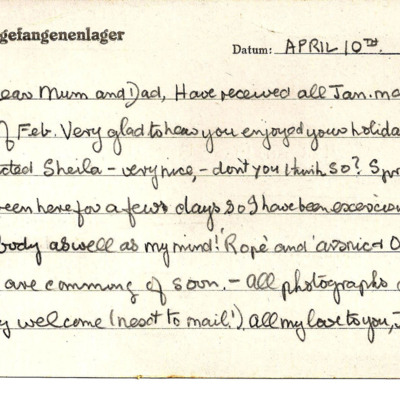 gefangenenlager
Datum: APRIL 10TH.
ear Mum and Dad, Have received all Jan. ma
Feb. Very glad to hear you enjoyed your holida
cted Sheila – very nice, – don't you think so? Spr
een here for a few days so I have been
body as well as my mind! 'Rope' and
are comming of soon. – All photographs
y welcome (next to mail!). All my love to you, J